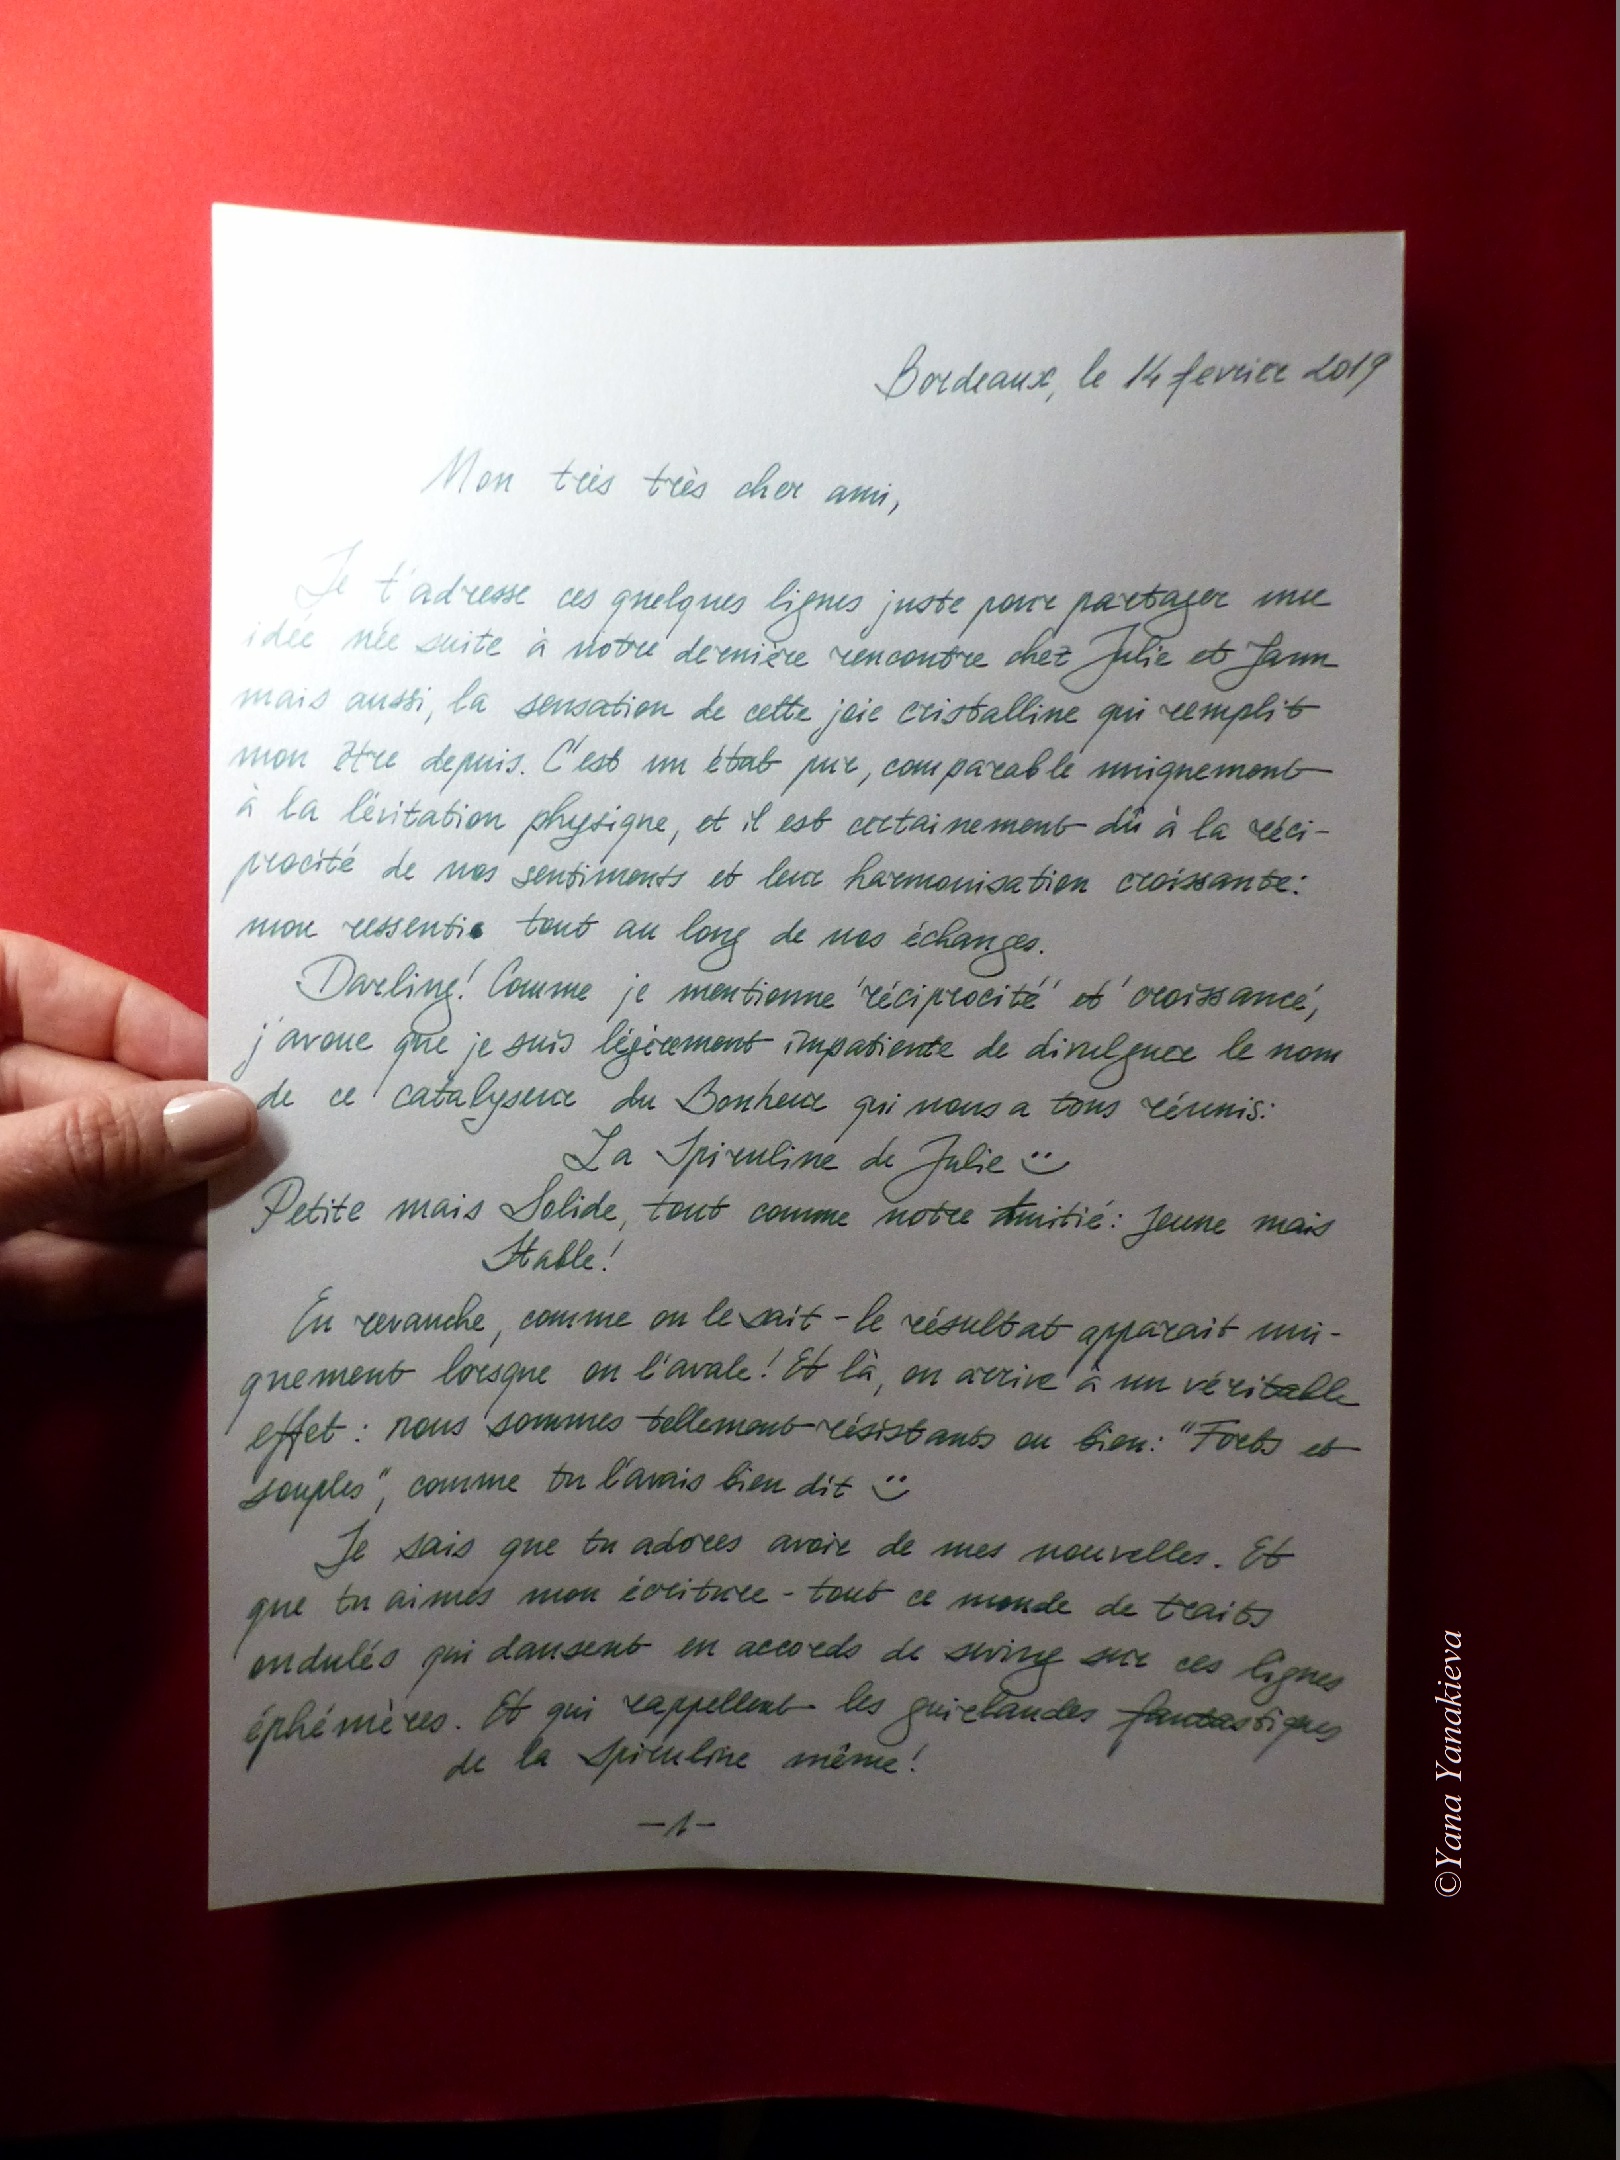 Bordeaux, le 14 fevrier 2019
Mon très très cher ami,
Je t'adresse ces quelques lignes juste pour partager une
idée née suite à notre dernière rencontre chez Julie et Yann
mais aussi, la sensation de cette joie cristalline qui remplit
mon être depuis. C'est un état pur, comparable uniquement
à la lévitation physique, et il est certainement dû à la réci-
procité de nos sentiments et leur harmonisation croissante:
mon ressenti tout au long de nos échanges.
Darling! Comme je mentionne 'réciprocité' et 'croissance',
j'avoue que je suis légèrement impatiente de divulguer le nom
de ce catalyseur du Bonheur qui nous a tous réunis:
La Spiruline de Julie
Petite mais Solide, tout comme notre Amitié: Jeune mais
Stable!
En revanche, comme on le sait - le résultat apparait uni-
quement lorsque on l'avale! Et là, on arrive à un véritable
effet: nous sommes tellement résistants ou bien: "Forts et
souples", comme tu l'avais bien dit
Je sais que tu adores avoir de mes nouvelles. Et
que tu aimes mon écriture - tout ce monde de traits
ondulés qui dansent en accords de swing sur ces lignes
éphémères. Et qui rappellent les guirlandes fantastiques
de la Spiruline même!
-1-
©Yana Yanakieva